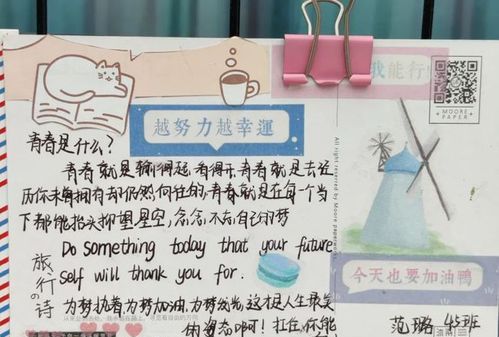 我能行
MOORE
PAPER
越努力越幸運
青春是什么?
青春就是输得起,看得开,青春就是去经
历你未曾拥有却仍然向往的,青春就是在每个当
下都能抬头仰望星空,念念不忘自己的梦
Do something today that your future
self will thank you for.
旅行の诗
为梦执着,为梦加油,为梦发光,这才是人生最美
的姿态啊!
All right reserved by Moore paper
今天也要加油鸭
范璐 45班